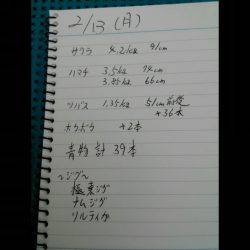 2/13(月)
サワラ 4.21kg 91cm
ハマチ 3.5kg 74cm
3.35kg 66cm
ツバス 1.35kg 51cm前後
+36本
ホウボウ +2本
青物 計 39本
〜ジグ〜
極東ジグ
ナムジグ
ソルティガ